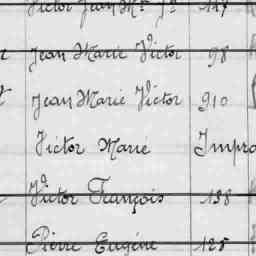 Victor Jean M 147
Jean Marie Victor 98
Jean Marie Victor 910
Victor Marie Impro
Victor François 138
Pierre Eugène 128